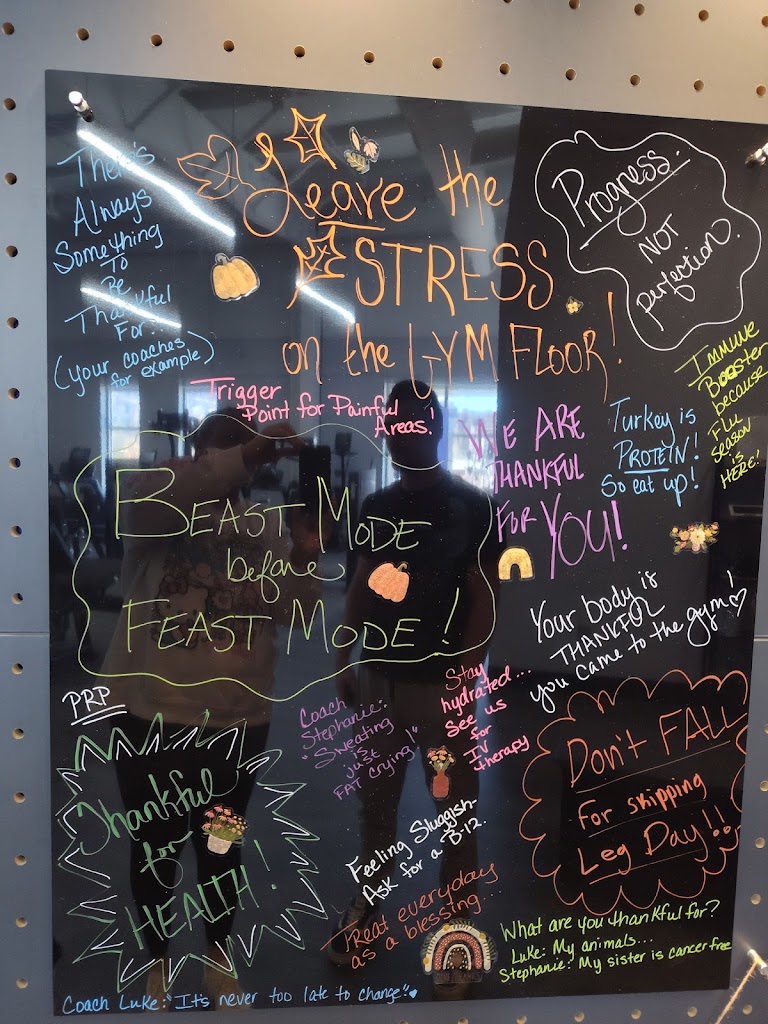 There's
Always
Something
To
Be
Thankful
For...
(your coaches
for example)
Leave the
STRESS
on the GYM FLOOR!
Progress.
NOT
perfection.
Immune
Booster
because
Flu
Season
is
HERE!
Trigger
Point for Painful
Areas!
WE ARE
THANKFUL
FOR YOU!
Turkey is
PROTEIN!
So eat up!
BEAST MODE
before
FEAST MODE!
Your body is
THANKFUL
you came to the gym!♡
PRP
Coach
Stephanie:
"Sweating
is
just
FAT crying!"
Stay
hydrated...
See us
for
IV
therapy
Don't FALL
For skipping
Leg Day!!
Thankful
for
HEALTH!
Feeling Sluggish-
Ask for a B-12.
Treat everyday
as a blessing...
What are you thankful for?
Luke: My animals...
Stephanie: My sister is cancer free
Coach Luke: "It's never too late to change"♥